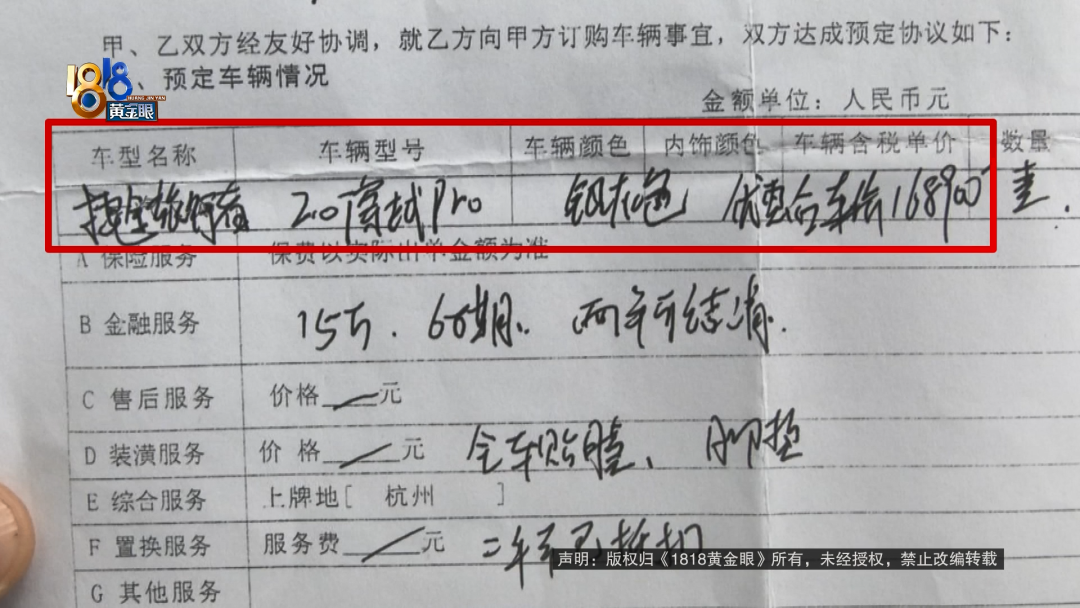 甲、乙双方经友好协调，就乙方向甲方订购车辆事宜，双方达成预定协议如下：
、预定车辆情况
1818
HUANG JIN YAN
黄金眼
金额单位：人民币元
车型名称 车辆型号 车辆颜色 内饰颜色 车辆含税单价 数量
2.0 Pro 银灰色 优惠后车价168900 壹
A 保险服务 保费以实际出单金额为准
B 金融服务 15万. 60期. 两年可结清.
C 售后服务 价格 元
D 装潢服务 价 格 元 全车贴膜、脚垫
E 综合服务 上牌地[ 杭州 ]
F 置换服务 服务费 元 二年
G 其他服务
声明：版权归《1818黄金眼》所有，未经授权，禁止改编转载